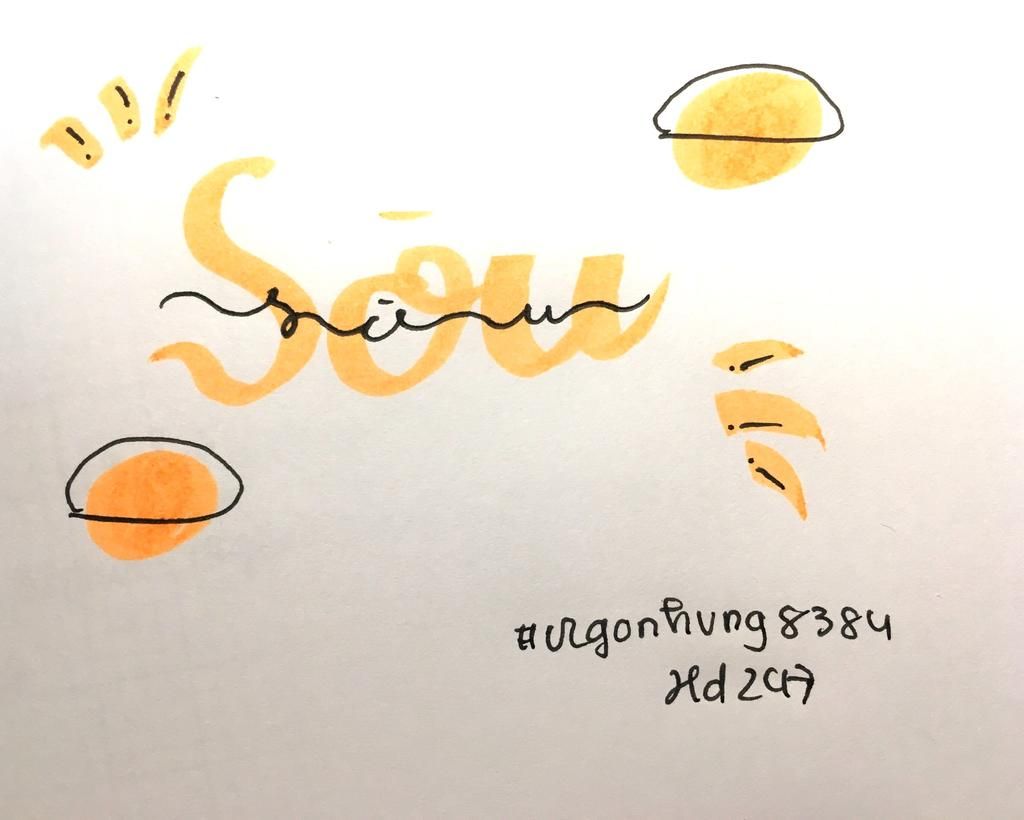 Sōu
sāu
#ngonhung8384
Hd247